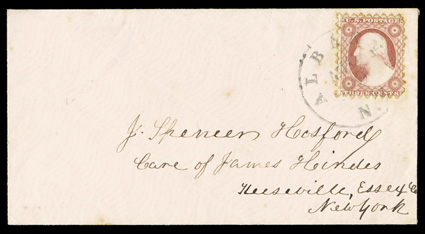 U.S. POSTAGE
ALB
N.
J. Spencer Hosford
Care of James Hindes
Keeseville, Essex Co
New York